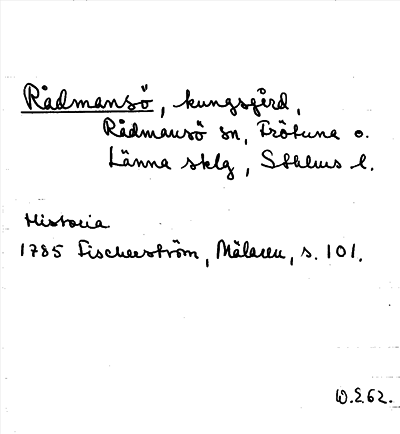 Rådmansö, kungsgård,
Rådmansö sn, Frötuna o.
Länna sklg, Sthlms l.
Historia
1785 Fischerström, Mälaren, s. 101.
W.E.62.